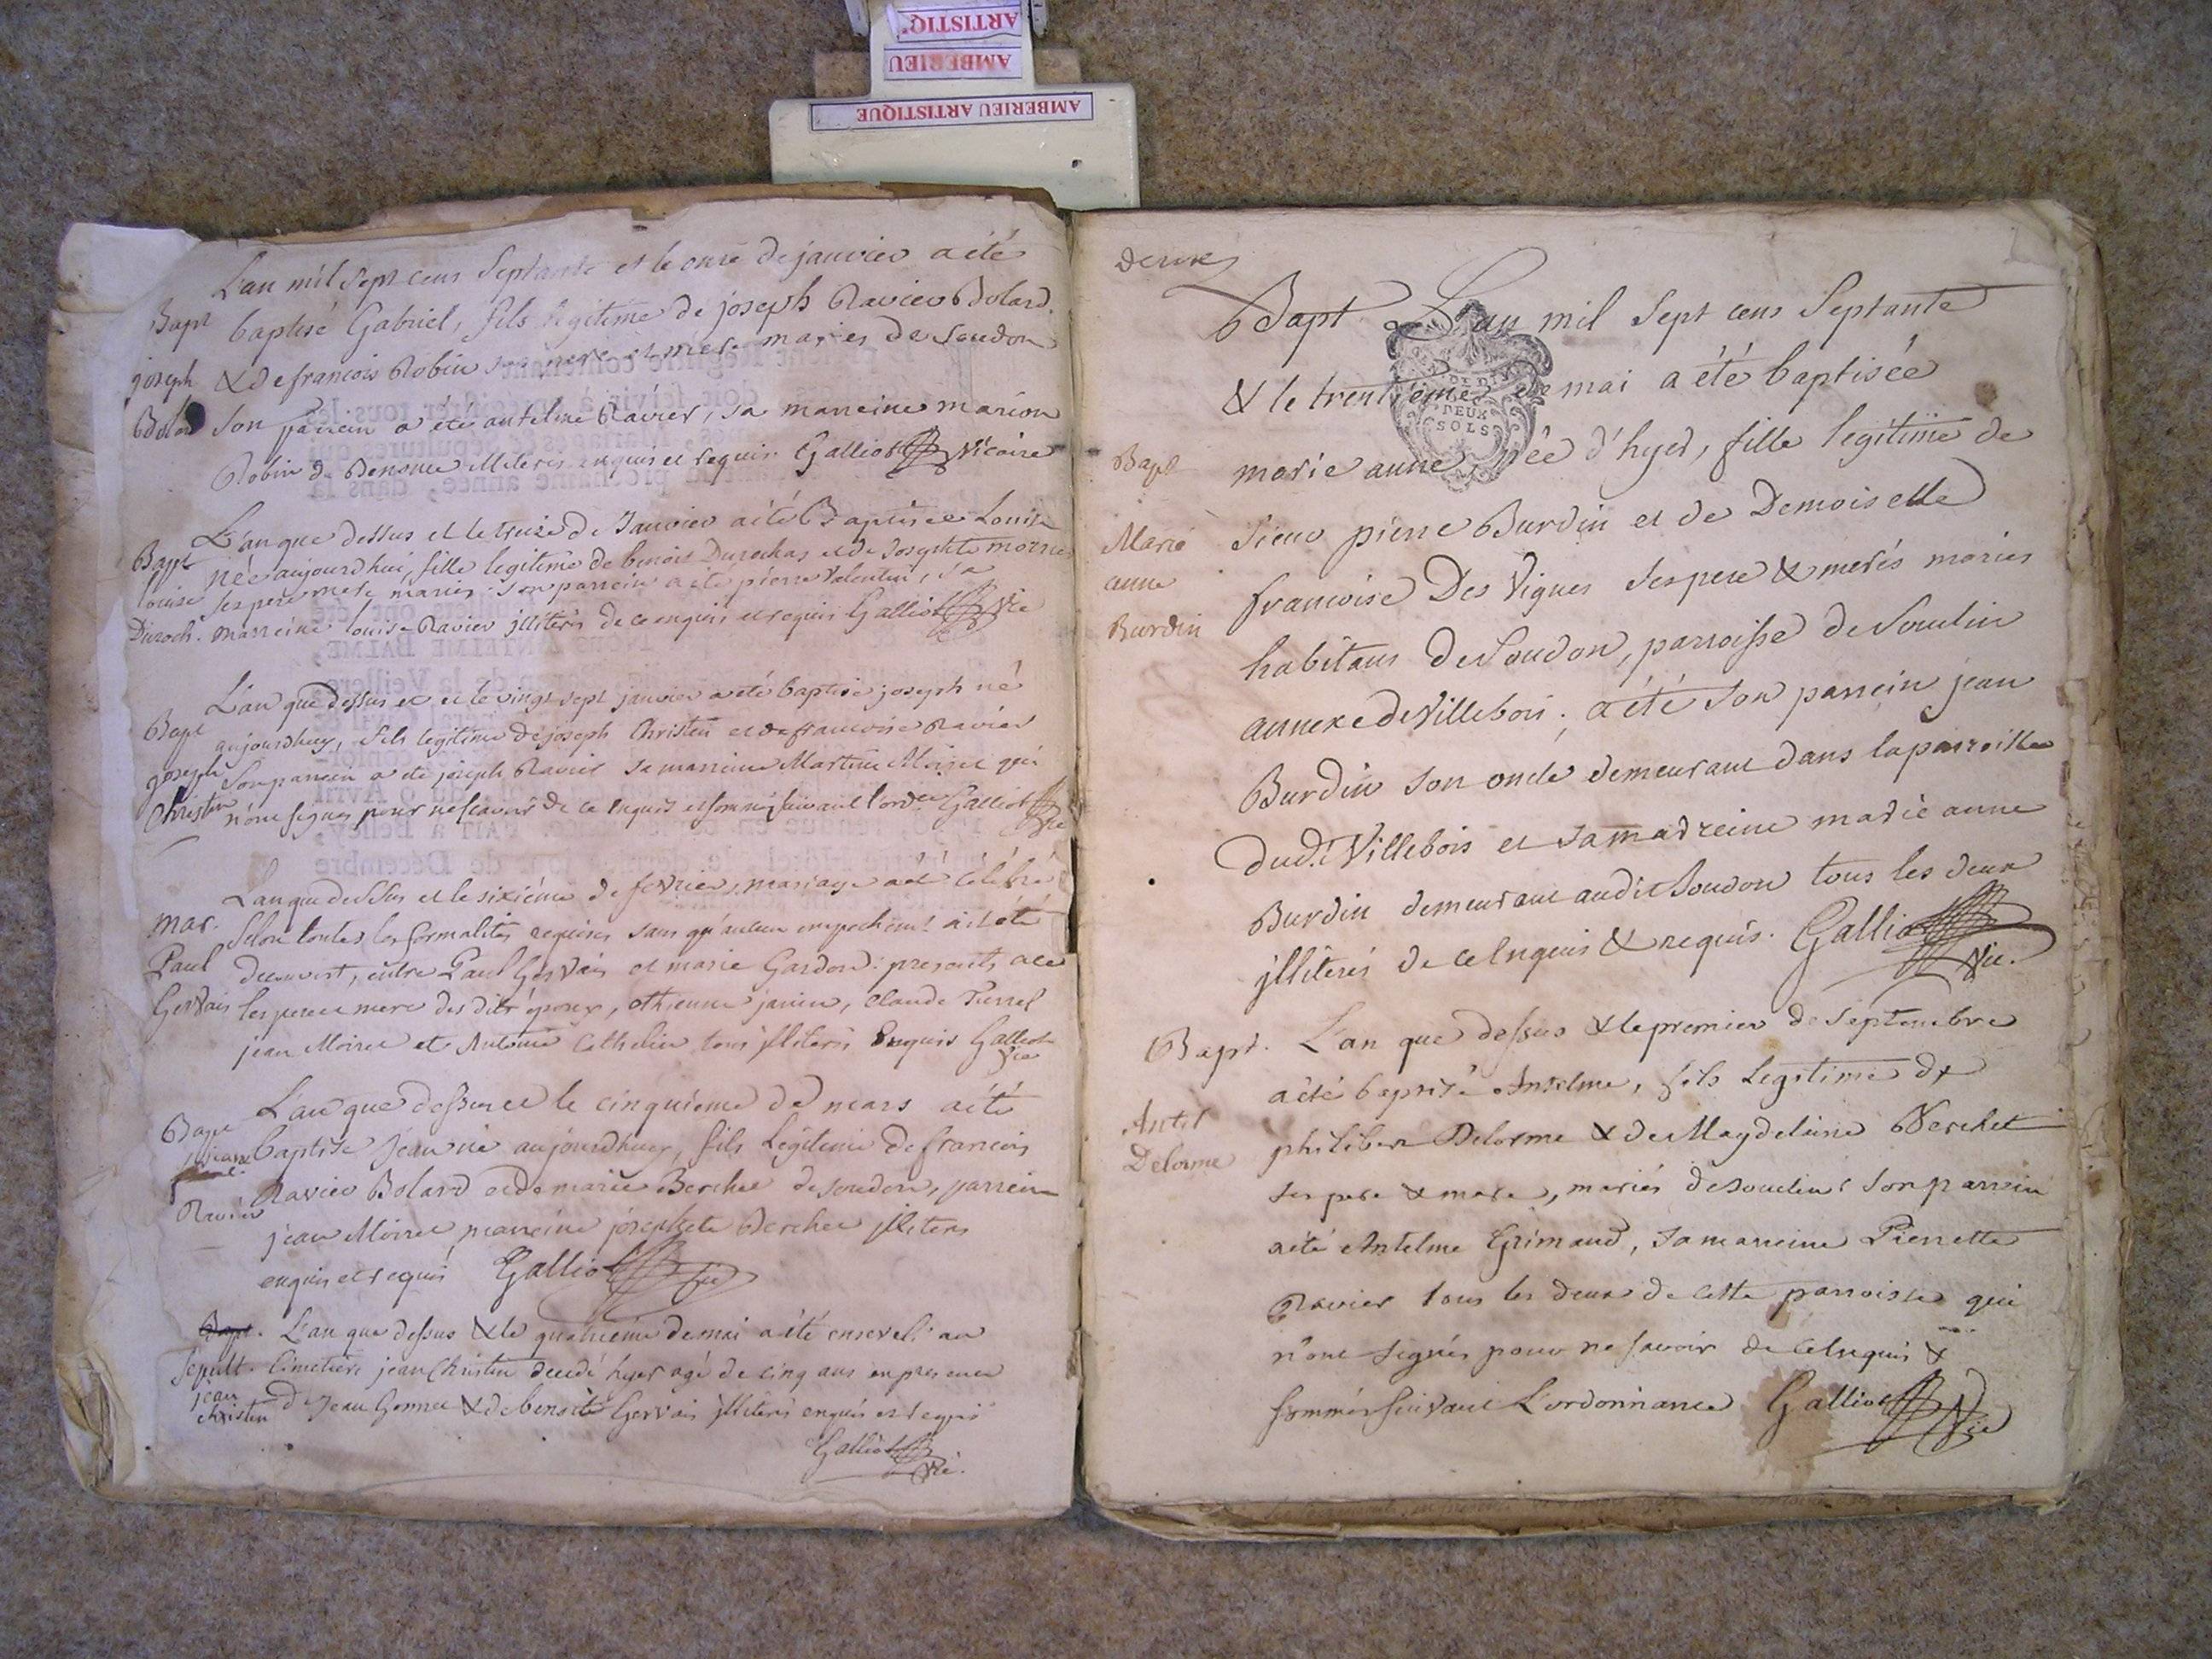 ARTISTIQ
AMBERIEU
AMBERIEU ARTISTIQUE
L'an mil sept cens septante et le onze de janvier a été
Bapt baptisé Gabriel, fils legitime de joseph Ravier Bolard
joseph & de francois Robin ses pere et mere mariés de Soudon
Bolard son parrein a été antelme Ravier, sa marreine marion
Robin de Benonce illiteres enquis et requis. Galliot Vicaire
L'an que dessus et le treize de Janvier a été Baptisee Louise
Bapt née aujourd'hui, fille legitime de benoit Durochas et de Josephte moiret
louise ses pere mere mariés. son parrein a été pierre Valentin, sa
Duroch. marreine louise Ravier jlliterés de ce enquis et requis Galliot Vic
L'an que dessus et et le vingt sept janvier a été baptisé joseph né
Bapt aujourdhuy, fils legitime de joseph Christin et de francoise Ravier
joseph Son parrein a eté joseph Ravier sa marreine Martine Moiret qui
Christin n'ont signés pour ne scavoir de ce enquis et sommés suivant l'ord.ce Galliot Vic
L'an que dessus et le sixiéme de fevrier, mariage a été célébré
mar. selon toutes les formalités requises sans qu'aucun empechem.t ait été
Paul decouvert, entre Paul Gervais et marie Gardon: presents a ce
Gervais les pere et mere des dits époux, ethienne janin, Claude Turrel
jean Moiret et Antoine Cathelin tous jlliterés Enquis Galliot
Vic
L'an que dessus et le cinquiéme de mars a été
Bapt baptisé Jean né aujourdhuy, fils Légitime de francois
jean
Ravier Ravier Bolard et de marie Berchet de soudon, parrein
jean Moiret marreine josephte Berchet jlliteres
enquis et requis Galliot Vic
Bapt. L'an que dessus & le quatriéme de mai a été enseveli au
Sepult. Cimetiére jean Christin decedé hyer agé de cinq ans en presence
jean christin de Jean Gonnet & de benoit Gervais jlliterés enquis et requis
Galliot
Vic.
deux
Bapt L'an mil sept cens septante
GEN. DE
DEUX
SOLS
& le trentiéme de mai a été baptisée
Bapt marie anne, née d'hyer, fille legitime de
Marie sieur pierre Burdin et de Demoiselle
anne francoise Des Vignes ses pere & merés mariés
Burdin habitans de Soudon, parroisse de Soudon
annexe de Villebois; a été son parrein jean
Burdin son oncle demeurant dans la parroisse
dud.t Villebois et sa marreine marie anne
Burdin demeurant audit Soudon tous les deux
jlliterés de ce Enquis & requis. Galliot
Vic.
Bapt. L'an que dessus & le premier de septembre
a été baptisé Anselme, fils Legitime de
Antel philibert Delorme & de Magdelaine Berchet
Delorme ses pere & mere, mariés de soudon; son parrein
a été Antelme Grimaud, sa marreine Pierrette
Ravier tous les deux de cette parroisse qui
n'ont signés pour ne savoir de ce Enquis &
sommés suivant L'ordonnance Galliot
Vic